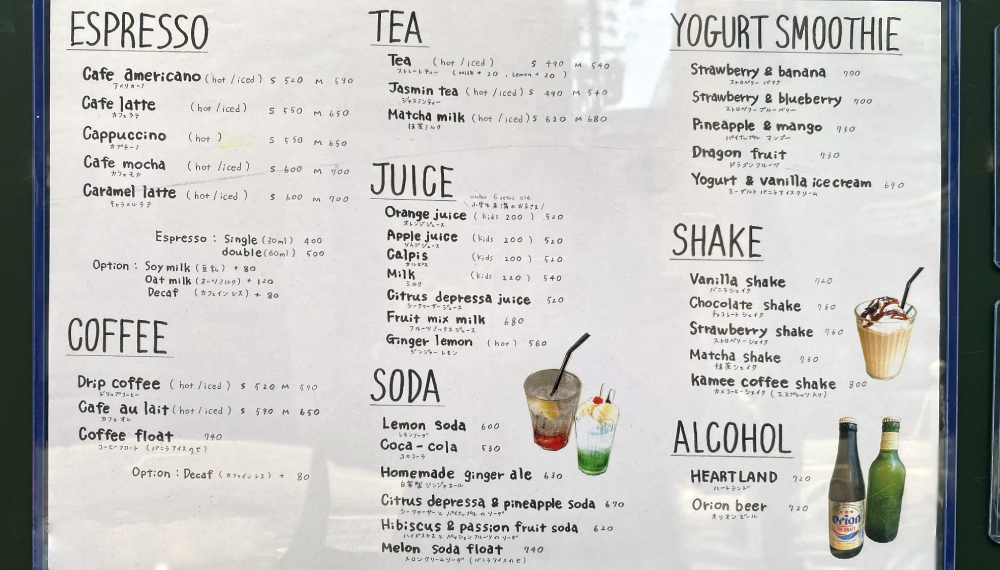 ESPRESSO
Cafe americano (hot/iced) S 520 M 590
アメリカーノ
Cafe latte (hot/iced) S 550 M 650
カフェラテ
Cappuccino (hot) S 550 M 650
カプチーノ
Cafe mocha (hot/iced) S 600 M 700
カフェモカ
Caramel latte (hot/iced) S 600 M 700
キャラメルラテ
Espresso : Single (30ml) 400
double (60ml) 500
Option : Soy milk (豆乳) + 80
Oat milk (オーツミルク) + 120
Decaf (カフェインレス) + 80
COFFEE
Drip coffee (hot/iced) S 520 M 590
ドリップコーヒー
Cafe au lait (hot/iced) S 590 M 650
カフェオレ
Coffee float 740
コーヒーフロート (バニラアイスのせ)
Option : Decaf (カフェインレス) + 80
TEA
Tea (hot/iced) S 490 M 540
ストレートティー (Milk + 20, Lemon + 20)
Jasmin tea (hot/iced) S 490 M 540
ジャスミンティー
Matcha milk (hot/iced) S 620 M 680
抹茶ミルク
JUICE
under 6 years old
小学生未満のお子さま
Orange juice (kids 200) 520
オレンジジュース
Apple juice (kids 200) 520
りんごジュース
Calpis (kids 200) 520
カルピス
Milk (kids 220) 540
ミルク
Citrus depressa juice 520
シークヮーサージュース
Fruit mix milk 680
フルーツミックスジュース
Ginger lemon (hot) 560
ジンジャーレモン
SODA
Lemon Soda 600
レモンソーダ
Coca-cola 530
コカコーラ
Homemade ginger ale 630
自家製ジンジャエール
Citrus depressa & pineapple soda 670
シークヮーサーとパイナップルのソーダ
Hibiscus & passion fruit soda 620
ハイビスカスとパッションフルーツのソーダ
Melon Soda float 740
メロンクリームソーダ (バニラアイスのせ)
YOGURT SMOOTHIE
Strawberry & banana 700
ストロベリー バナナ
Strawberry & blueberry 700
ストロベリーブルーベリー
Pineapple & mango 730
パイナップル マンゴー
Dragon fruit 730
ドラゴンフルーツ
Yogurt & vanilla ice cream 690
ヨーグルトバニラアイスクリーム
SHAKE
Vanilla shake
バニラシェイク
Chocolate shake 760
チョコレートシェイク
Strawberry shake 760
ストロベリーシェイク
Matcha shake 730
抹茶シェイク
kamee coffee shake 800
カメコーヒーシェイク (エスプレッソ入り)
ALCOHOL
HEARTLAND 720
ハートランド
Orion beer 720
オリオンビール
Orion